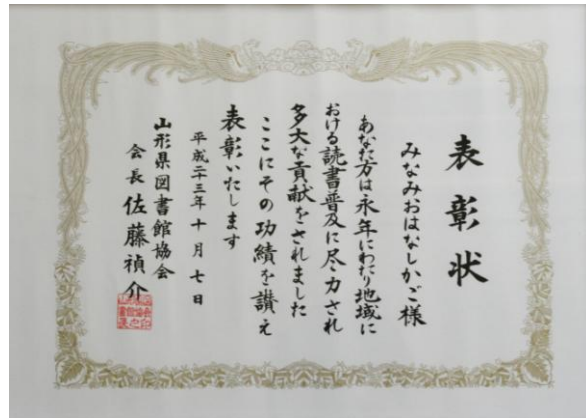 表彰状
みなみおはなしかご様
あなた方は永年にわたり地域に
おける読書普及に尽力され
多大な貢献をされました
ここにその功績を讃え
表彰いたします
平成二十三年十月七日
山形県図書館協会
会長 佐藤禎介